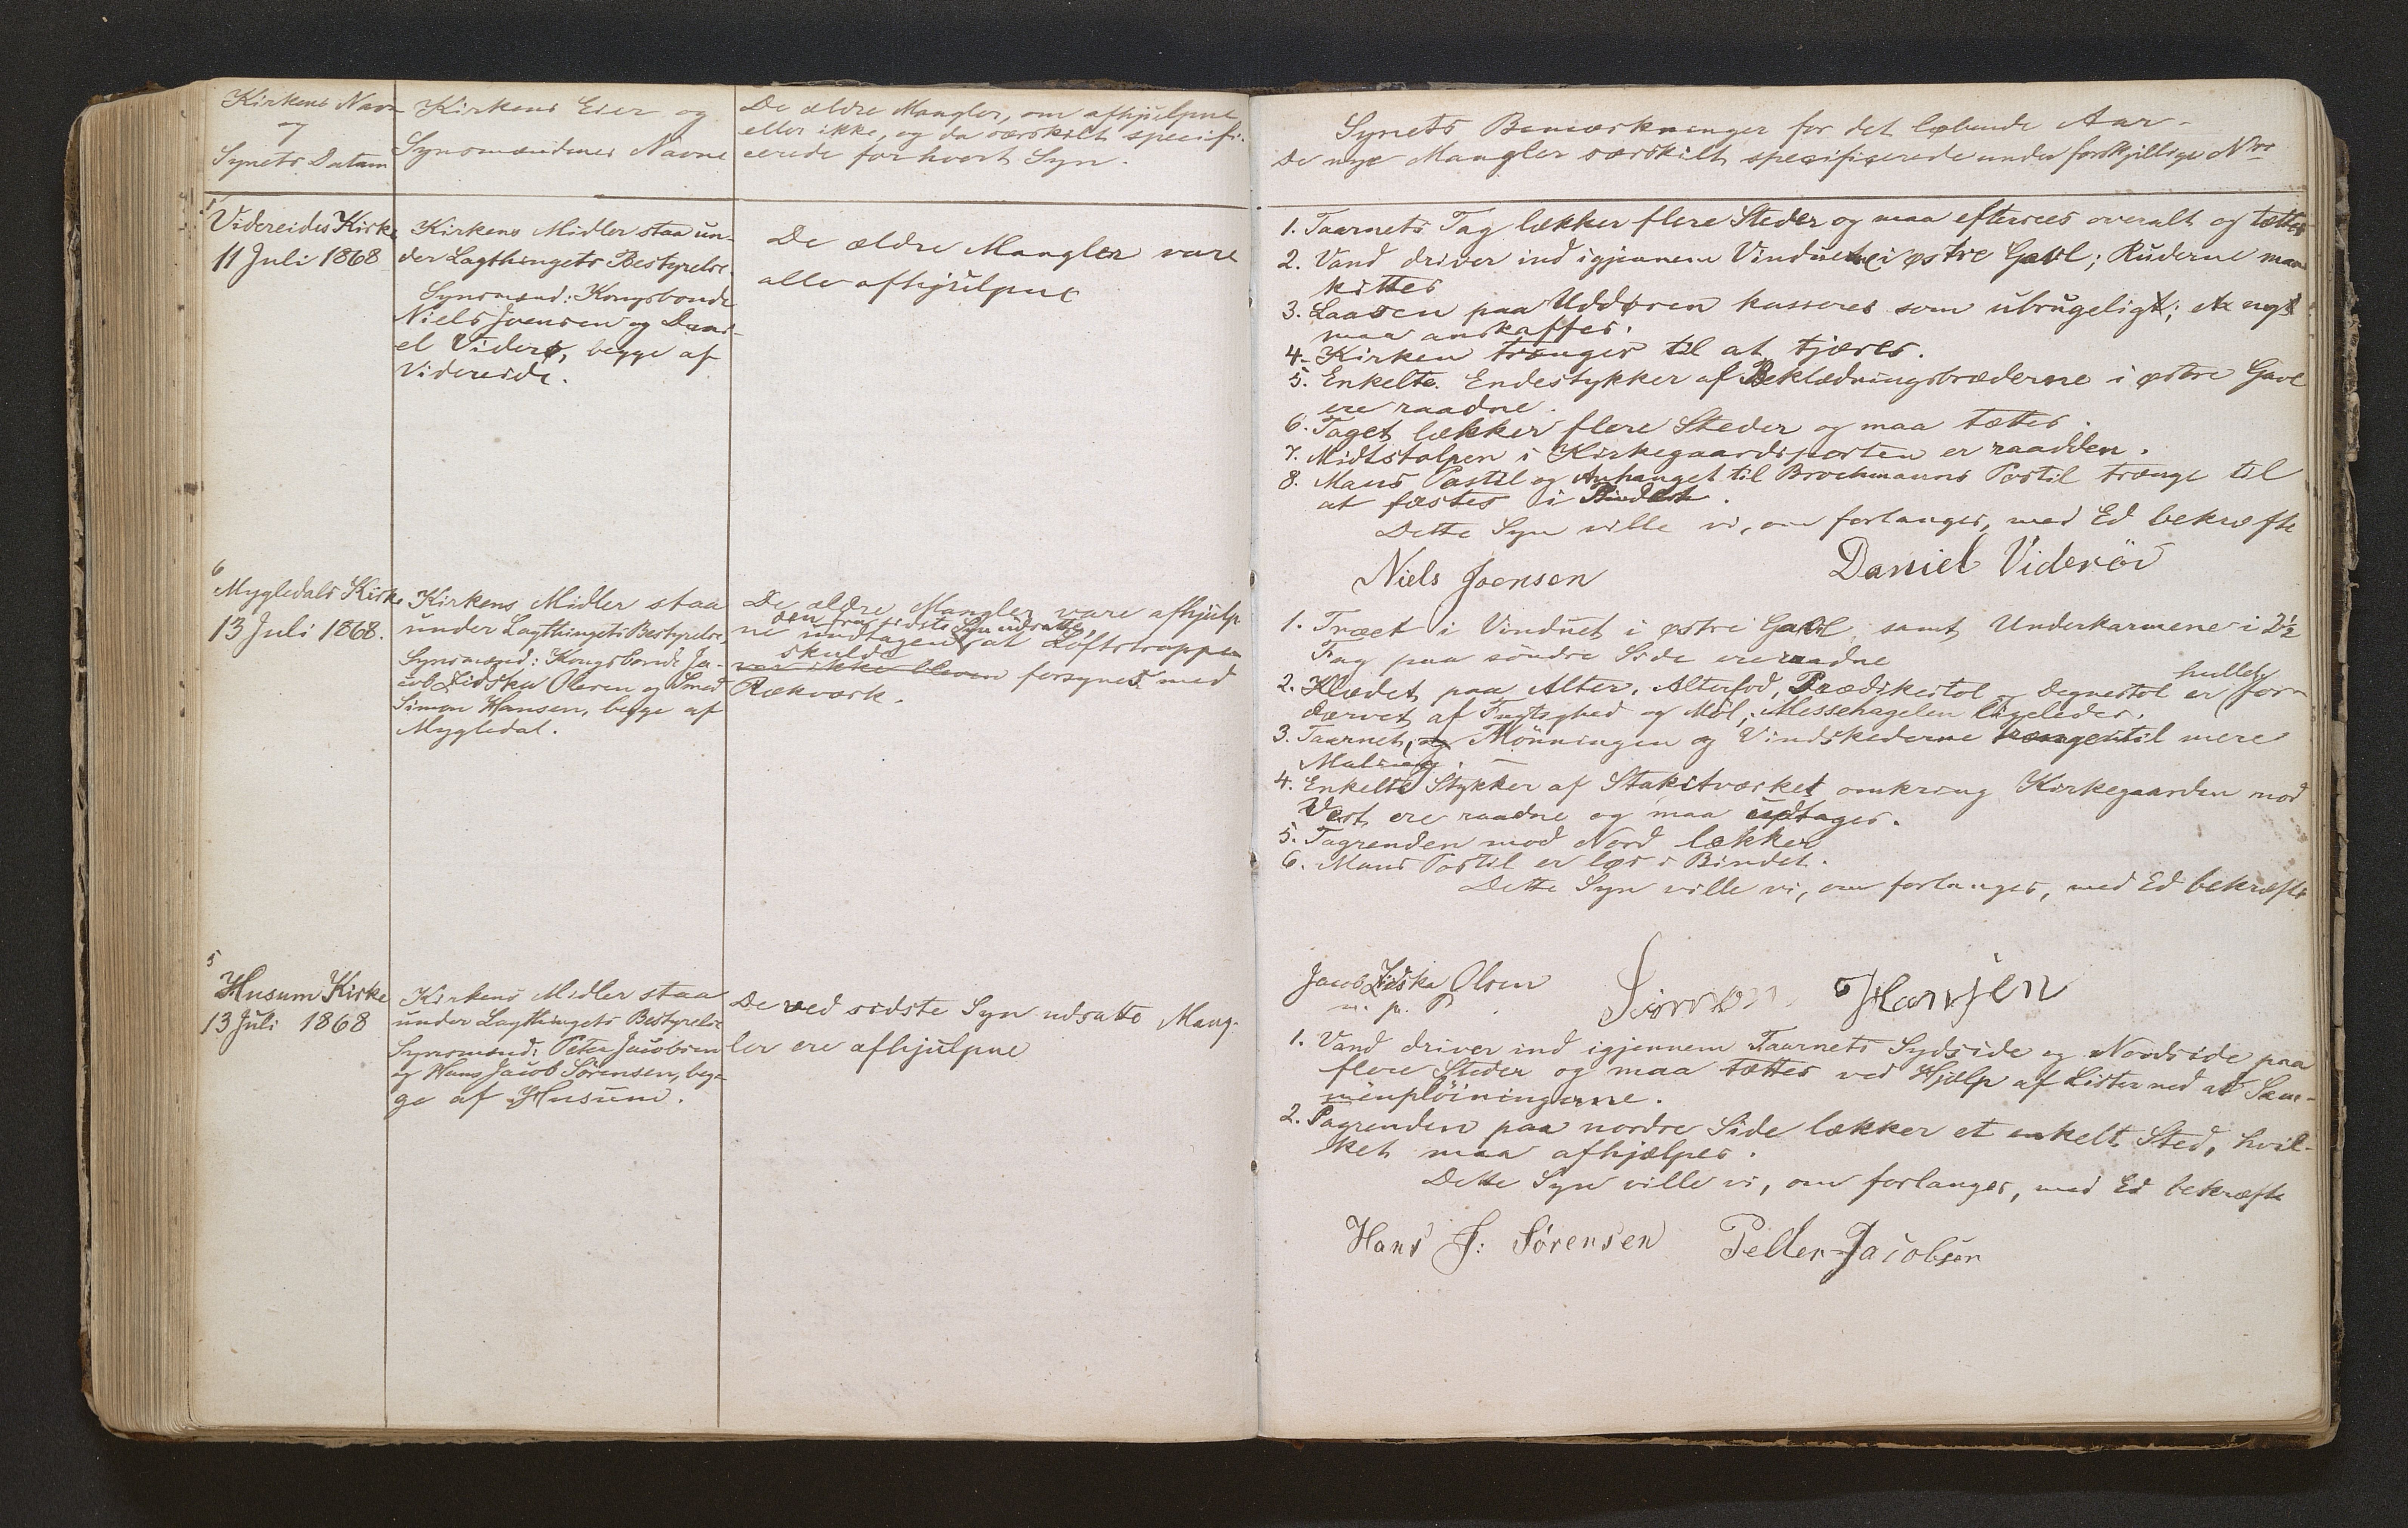 Kirkens Navn
og
Synets Datum
Kirkens Eier og
Synsmændenes Navne
De ældre Mangler, om afhjulpne
eller ikke, og da særskilt specifi-
cerede for hvert Syn.
Synets Bemærkninger for det løbende Aar-
De nye Mangler særskilt specificerede under forskjellige Nro
Videreides Kirke
11 Juli 1868
Kirkens Midler staa un-
der Lagthingets Bestyrelse.
Synsmænd: Kongsbonde
Niels Joensen og Dani-
el Viderø, begge af
Videreide.
De ældre Mangler vare
alle afhjulpne
1. Taarnets Tag lækker flere Steder og maa eftersees overalt og tættes
2. Vand driver ind igjennem Vinduerne i østre Gavl; Ruderne maa
kittes
3. Laasen paa Uddøren kasseres som ubrugeligt; et nyt
maa anskaffes.
4. Kirken trænger til at tjæres.
5. Enkelte Endestykker af Beklædningsbræderne i østre Gavl
ere raadne.
6. Taget lækker flere Steder og maa tættes.
7. Midtstolpen i Kirkegaardsporten er raadden.
8. Maus Postil og Anhanget til Brochmanns Postil trænge til
at fæstes i Bindet.
Dette Syn ville vi, om forlanges, med Ed bekræfte
Niels Joensen Daniel Videröe
6
Mygledals Kirke
13 Juli 1868.
Kirkens Midler staa
under Lagthingets Bestyrelse
Synsmænd: Kongsbonde Ja-
cob Zidska Olesen og Smed
Simon Hansen, begge af
Mygledal.
De ældre Mangler vare afhjulp
den fra sidste Syn udsatte,
ne undtagen at Loftstrappen
skulde
var ikke bleven forsynet med
Rækværk.
1. Træet i Vinduet i østre Gavl samt Underkarmene i 2½
Fag paa söndre Side ere raadne
hullet
2. Klædet paa Alter, Alterfod, Prædikestol og Degnestol er for-
dærvet af Fugtighed og Møl; Messehagelen ligeledes.
3. Taarnet, og Mönningen og Vindskederne trænger til mere
Maling.
4. Enkelte Stykker af Stakitværket omkring Kirkegaarden mod
Vest ere raadne og maa udtages.
5. Tagrenden mod Nord lækker
6. Maus Postil er løs i Bindet.
Dette Syn ville vi, om forlanges, med Ed bekræfte
Jacob Zidska Olsen
m. p. P. Simon Hansen
5
Husum Kirke
13 Juli 1868
Kirkens Midler staa
under Lagthingets Bestyrelse
Synsmænd: Peter Jacobsen
og Hans Jacob Sörensen, beg-
ge af Husum.
De ved sidste Syn udsatte Mang-
ler ere afhjulpne
1. Vand driver ind igjennem Taarnets Sydside og Nordside paa
flere Steder og maa tættes ved Hjælp af Lister ned ad Sam-
menpløiningerne.
2. Tagrenden paa nordre Side lækker et enkelt Sted, hvil-
ket maa afhjælpes.
Dette Syn ville vi, om forlanges, med Ed bekræfte
Hans J: Sörensen Petter Jacobsen